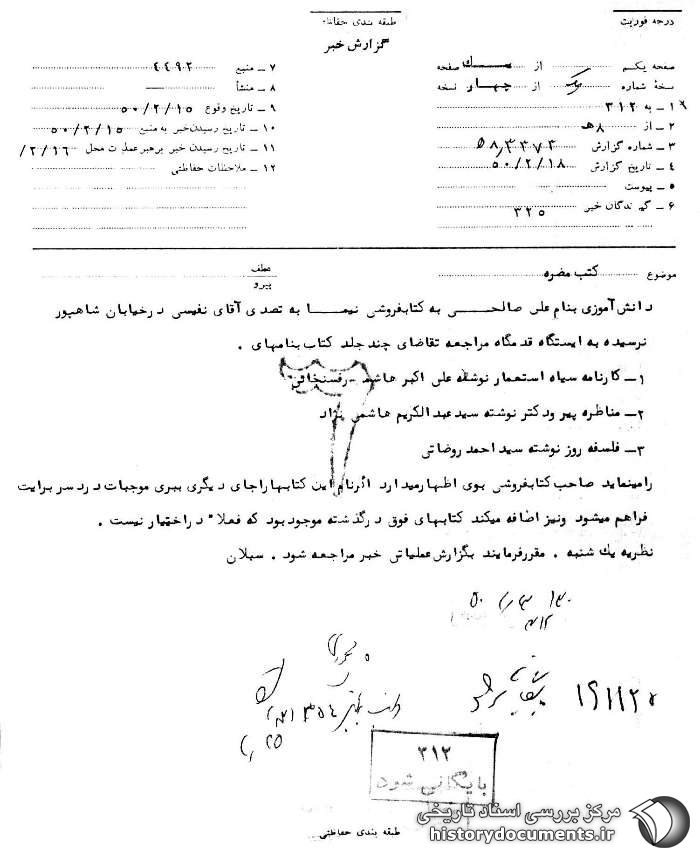 درجه فوریت
طبقه بندی حفاظتی
گزارش خبر
صفحه یکم از یک صفحه
نسخه شماره یک از چهار نسخه
۱ـ به ۳۱۲
۲ـ از ۸ هـ
۳ـ شماره گزارش
۴ـ تاریخ گزارش ۵۰/۲/۱۸
۵ـ پیوست
۶ـ گیرندگان خبر ۳۲۵
۷ـ منبع ۴۴۹۲
۸ـ منشأ
۹ـ تاریخ وقوع ۵۰/۲/۱۵
۱۰ـ تاریخ رسیدن خبر به منبع ۵۰/۲/۱۵
۱۱ـ تاریخ رسیدن خبر برهبر عملیات محل ۲/۱۶/
۱۲ـ ملاحظات حفاظتی
موضوع کتب مضره
عطف
پیرو
دانش آموزی بنام علی صالحی به کتابفروشی نیما به تصدی آقای نفیسی درخیابان شاهپور
نرسیده به ایستگاه قدمگاه مراجعه تقاضای چند جلد کتاب بنامهای .
۱ـ کارنامه سیاه استعمار نوشته علی اکبر هاشمی رفسنجانی
۲ـ مناظره پیر ودکتر نوشته سید عبدالکریم هاشمی نژاد
۳ـ فلسفه روز نوشته سید احمد روضاتی
رامینماید صاحب کتابفروشی بوی اظهارمیدارد اگرنام این کتابهاراجای دیگری ببری موجبات دردسر برایت
فراهم میشود ونیز اضافه میکند کتابهای فوق درگذشته موجود بود که فعلاً دراختیار نیست .
نظریه یك شنبه . مقررفرمایند بگزارش عملیاتی خبر مراجعه شود . سبلان
۱۹۱۱۲۵
۳۱۲
بایگانی شود
طبقه بندی حفاظتی
مرکز بررسی اسناد تاریخی
historydocuments.ir